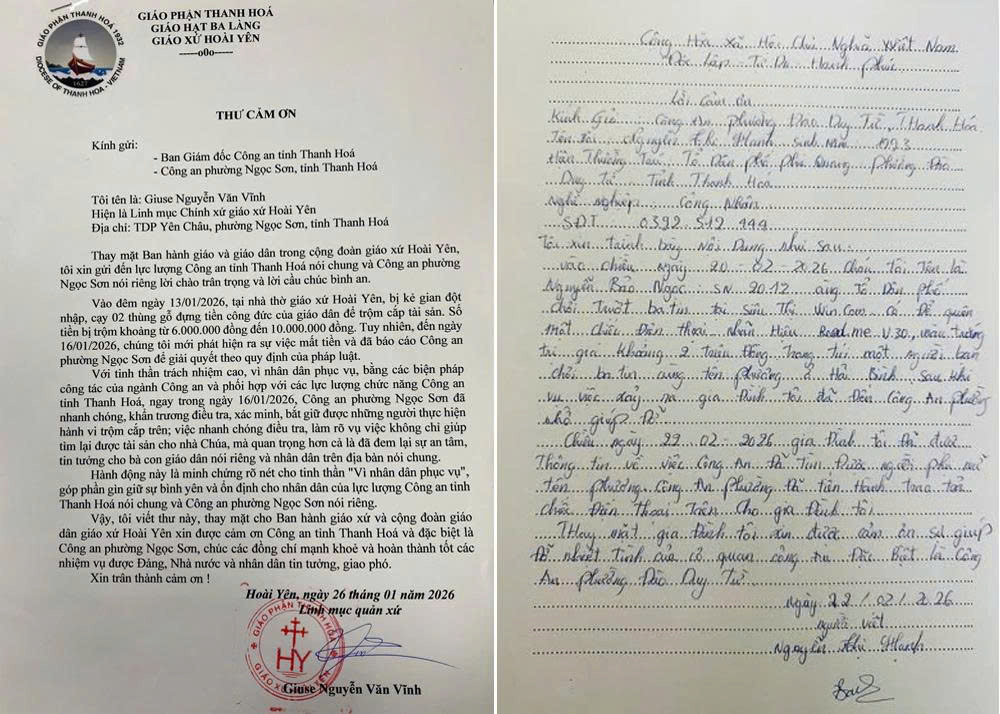 GIÁO PHẬN THANH HOÁ 1932
DIOCESE OF THANH HOA - VIETNAM
1627
GIÁO PHẬN THANH HOÁ
GIÁO HẠT BA LÀNG
GIÁO XỨ HOÀI YÊN
------o0o------
THƯ CẢM ƠN
Kính gửi:
- Ban Giám đốc Công an tỉnh Thanh Hoá
- Công an phường Ngọc Sơn, tỉnh Thanh Hoá
Tôi tên là: Giuse Nguyễn Văn Vĩnh
Hiện là Linh mục Chính xứ giáo xứ Hoài Yên
Địa chỉ: TDP Yên Châu, phường Ngọc Sơn, tỉnh Thanh Hoá
Thay mặt Ban hành giáo và giáo dân trong cộng đoàn giáo xứ Hoài Yên,
tôi xin gửi đến lực lượng Công an tỉnh Thanh Hoá nói chung và Công an phường
Ngọc Sơn nói riêng lời chào trân trọng và lời cầu chúc bình an.
Vào đêm ngày 13/01/2026, tại nhà thờ giáo xứ Hoài Yên, bị kẻ gian đột
nhập, cạy 02 thùng gỗ đựng tiền công đức của giáo dân để trộm cắp tài sản. Số
tiền bị trộm khoảng từ 6.000.000 đồng đến 10.000.000 đồng. Tuy nhiên, đến ngày
16/01/2026, chúng tôi mới phát hiện ra sự việc mất tiền và đã báo cáo Công an
phường Ngọc Sơn để giải quyết theo quy định của pháp luật.
Với tinh thần trách nhiệm cao, vì nhân dân phục vụ, bằng các biện pháp
công tác của ngành Công an và phối hợp với các lực lượng chức năng Công an
tỉnh Thanh Hoá, ngay trong ngày 16/01/2026, Công an phường Ngọc Sơn đã
nhanh chóng, khẩn trương điều tra, xác minh, bắt giữ được những người thực hiện
hành vi trộm cắp trên; việc nhanh chóng điều tra, làm rõ vụ việc không chỉ giúp
tìm lại được tài sản cho nhà Chúa, mà quan trọng hơn cả là đã đem lại sự an tâm,
tin tưởng cho bà con giáo dân nói riêng và nhân dân trên địa bàn nói chung.
Hành động này là minh chứng rõ nét cho tinh thần "Vì nhân dân phục vụ",
góp phần gìn giữ sự bình yên và ổn định cho nhân dân của lực lượng Công an tỉnh
Thanh Hoá nói chung và Công an phường Ngọc Sơn nói riêng.
Vậy, tôi viết thư này, thay mặt cho Ban hành giáo xứ và cộng đoàn giáo
dân giáo xứ Hoài Yên xin được cảm ơn Công an tỉnh Thanh Hoá và đặc biệt là
Công an phường Ngọc Sơn, chúc các đồng chí mạnh khoẻ và hoàn thành tốt các
nhiệm vụ được Đảng, Nhà nước và nhân dân tin tưởng, giao phó.
Xin trân thành cảm ơn !
Hoài Yên, ngày 26 tháng 01 năm 2026
Linh mục quản xứ
GIÁO PHẬN THANH HOÁ
HY
GIÁO XỨ HOÀI YÊN
Giuse Nguyễn Văn Vĩnh
Cộng Hòa Xã Hội Chủ Nghĩa Việt Nam
Độc Lập Tự Do Hạnh Phúc
Lời cảm ơn
Kính Gửi Công An phường Đào Duy Từ, T.Thanh Hóa
Tên tôi Nguyễn Thị Hạnh sinh Năm 1993
Hộ Thường Trú Tổ Dân phố Phú Quang Phường Đào
Duy Từ Tỉnh Thanh Hoá
Nghề nghiệp Công Nhân
SĐT 0392 512 444
Tôi xin trình bày Nội Dung như sau
vào chiều ngày 20-02-2026 Cháu tôi Tên là
Nguyễn Bảo Ngọc SN 2012 cùng Tổ Dân phố
chơi trượt ba tin tại Siêu Thị Win Com có Để quên
một chiếc Điện thoại Nhãn Hiệu V.30 màu
trị giá khoảng 2 triệu Đồng Trong Túi một người bạn
chơi ba tin cùng tên phương ở Hải Bình sau khi
vụ việc xảy ra gia Đình tôi đã Đến Công An phường
nhờ giúp Đỡ
Chiều ngày 22-02-2026 gia Đình tôi Đã được
Thông tin về việc Công An Đã Tìm Được người phụ nữ
tên phương Công An phường Đã tiến Hành trao trả
chiếc Điện Thoại Trên Cho gia Đình tôi
Thay mặt gia Đình tôi xin được cảm ơn sự giúp
Đỡ nhiệt Tình của cơ quan công An Đặc Biệt là Công
An phường Đào Duy Từ
Ngày 22/02/2026
người viết
Nguyễn Thị Hạnh